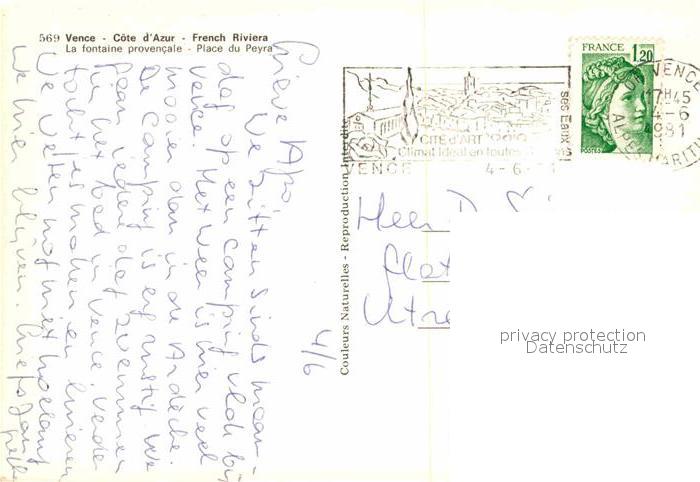 569 Vence - Côte d'Azur - French Riviera
La fontaine provençale - Place du Peyra
4/6
Lieve
We zitten sinds maan-
dag op een camping vlak bij
Vence. Het weer is hier veel
mooier dan in de Ardèche.
De camping is erg rustig. We
gaan iedere dag zwemmen
in het bad in Vence. Verder
tochtjes maken en luieren
We weten nog niet hoelang
we hier blijven. Liefs
Couleurs Naturelles - Reproduction Interdite
CITÉ d'ART
Climat Idéal en toutes
ses Eaux
VENCE
4-6-
FRANCE
1,20
POSTES
VENCE
17H45
4-6
1981
ALPES MARITIMES
Heer
Utre
privacy protection
Datenschutz